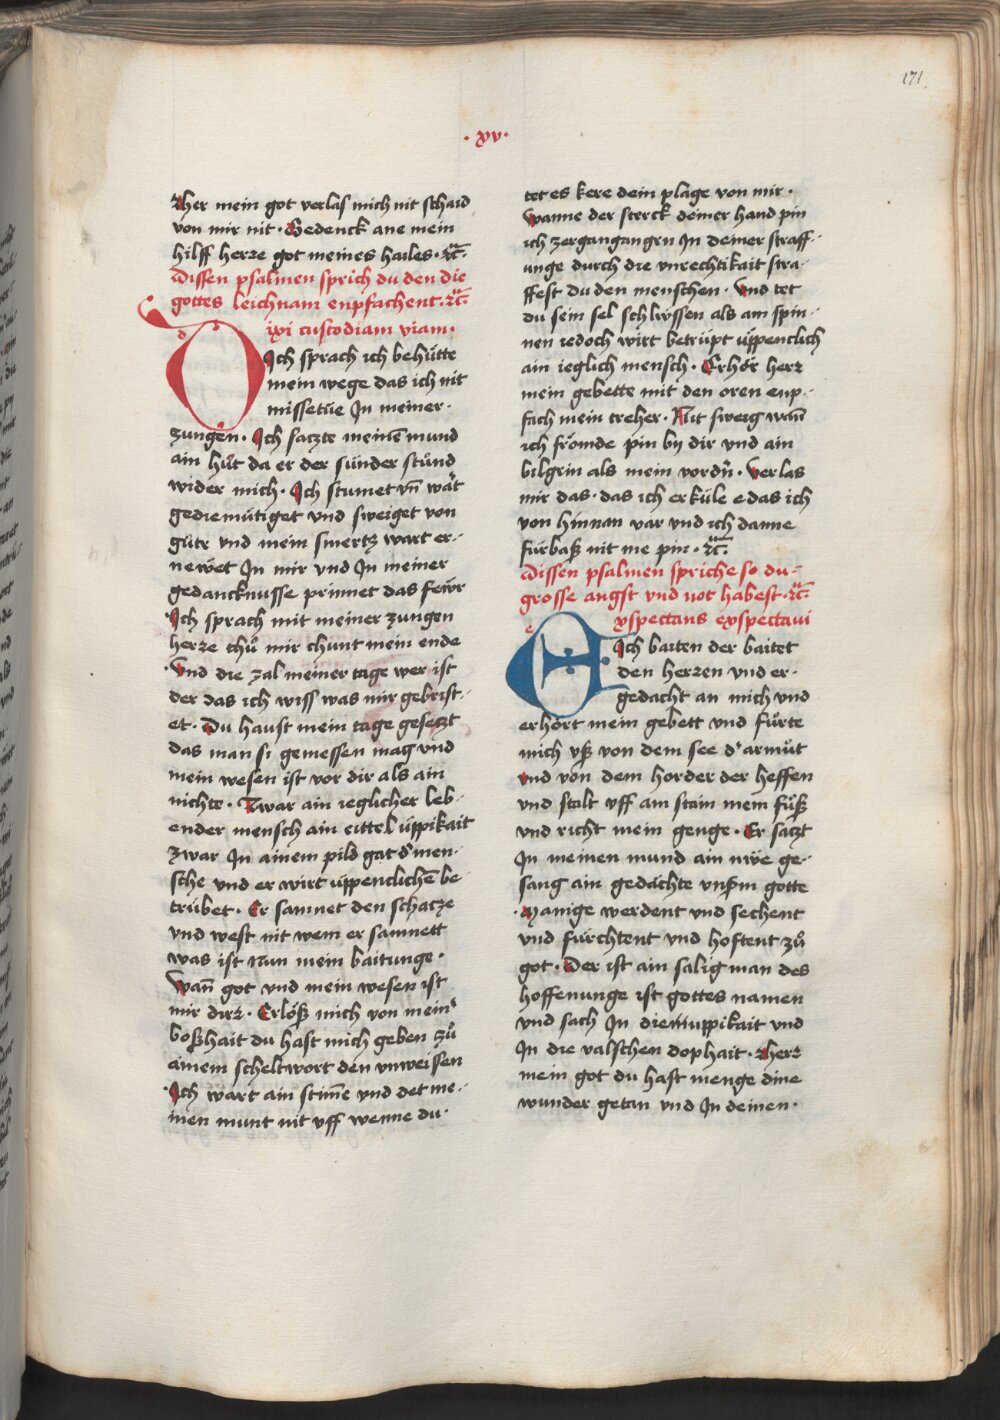 171
· xv ·
Her mein got verlas mich nit schaid
von mir nit · Gedenck ane mein
hilff herre got meines hailes · ꝛc̃ ·
Dissen psalmen sprich du den die
gottes leichnam enpfachent · ꝛc̃ ·
D ixi custodiam viam ·
Ich sprach ich behütte
mein wege das ich nit
missetüe In meiner ·
zungen · Ich saczte meinē mund
ain hůt da er der sünder stůnd
wider mich · Ich stumet vñ wart
gediemütiget vnd sweiget von
gůte vnd mein smertz wart er-
newet In mir vnd In meiner
gedancknusse prinnet das fewr
· Ich sprach mit meiner zungen
herre thů mir chunt mein ende
· Vnd die zal meiner tage wer ist
der das ich wiss was mir gebrist-
et · Du haust mein tage geseczt
das man si gemessen mag vnd
mein wesen ist vor dir als ain
nichte · Zwar ain ieglicher leb-
ender mensch ain eittel üppikait
zwar In ainem pild gat d' men-
sche vnd er wirt üppenclichē be
trübet · Er samnet den schacze
vnd west nit wem er samnett
was ist nun mein baitunge ·
Wañ got vnd mein wesen ist
mir dirr · Erlöß mich von mein'
boßhait du hast mich geben zů
ainem scheltwort den vnweissen
· Ich wart ain stim̄e vnd det me-
inen munt nit vff wenne du ·
tet es kere dein plage von mir ·
Wanne der sterck deiner hand pin
ich zergangangen In deiner straff-
unge durch die vnrechtikait stra-
ffest du den menschen · Vnd tet
du sein sel schlissen als am spin-
nen iedoch wirt betrüpt üppenclich
ain ieglich mensch · Erhör herr
mein gebette mit den oren enp-
fach mein treher · Nit sweig wañ
ich frömde pin by dir vnd ain
bilgrin als mein vordñ · Verlas
mir das · das ich erküle e das ich
von hinnan var vnd ich danne
fürbaß nit me pin · ꝛc̃ ·
Dissen psalmen spriche so du-
grosse angst vnd not habest · ꝛc̃ ·
E xspectans exspectaui
Ich baiten der baitet
den herren vnd er-
gedacht an mich vnd
erhört mein gebett vnd fůrte
mich vß von dem see d' armůt
vnd von dem horder der heffen
vnd stalt vff am stain mein fůß
vnd richt mein genge · Er saczt
In meinen mund ain nwe ge-
sang ain gedächte vnßm gotte
· Manige werdent vnd sechent
vnd fürchtent vnd hoffent zů
got · Der ist ain sälig man des
hoffenunge ist gottes namen
vnd sach In die nuppikait vnd
In die valschen dophait · Herr
mein got du hast menge dine
wunder getan vnd In deinen ·